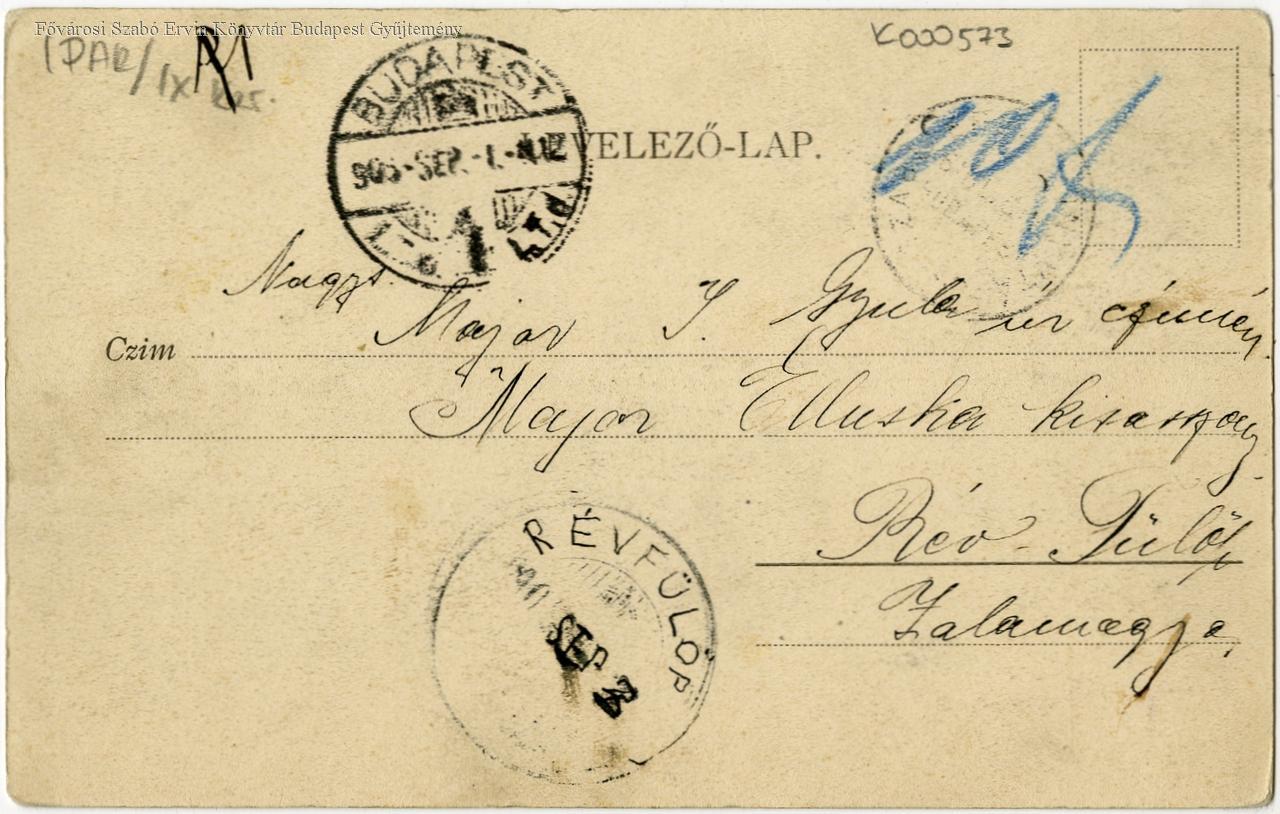 Fővárosi Szabó Ervin Könyvtár Budapest Gyűjtemény
IPAR/IX
K000573
BUDAPEST
905-SEP.-1.-N12
LEVELEZŐ-LAP.
Nagys.
Czim Major I. Gyula úr czimén.
Major Elluska kisasszony
Rév-Fülöp
Zalamegye.
RÉVFÜLÖP
SEP